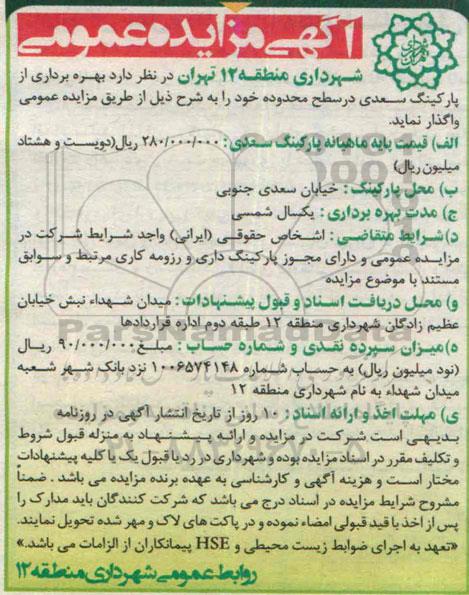 آگهی مزایده عمومی
شهرداری منطقه ۱۲ تهران در نظر دارد بهره برداری از
پارکینگ سعدی درسطح محدوده خود را به شرح ذیل از طریق مزایده عمومی
واگذار نماید.
الف) قیمت پایه ماهیانه پارکینگ سعدی: ۲۸۰/۰۰۰/۰۰۰ ریال(دویست و هشتاد
میلیون ریال)
ب) محل پارکینگ: خیابان سعدی جنوبی
ج) مدت بهره برداری: یکسال شمسی
د)شرایط متقاضی: اشخاص حقوقی (ایرانی) واجد شرایط شرکت در
مزایده عمومی و دارای مجوز پارکینگ داری و رزومه کاری مرتبط و سوابق
مستند با موضوع مزایده
و) محل دریافت اسناد و قبول پیشنهادات: میدان شهداء نبش خیابان
عظیم زادگان شهرداری منطقه ۱۲ طبقه دوم اداره قراردادها
ه)میزان سپرده نقدی و شماره حساب: مبلغ ۹۰/۰۰۰/۰۰۰ ریال
(نود میلیون ریال) به حساب شماره ۱۰۰۶۵۷۴۱۴۸ نزد بانک شهر شعبه
میدان شهداء به نام شهرداری منطقه ۱۲
ی) مهلت اخذ و ارائه اسناد: ۱۰ روز از تاریخ انتشار آگهی در روزنامه
بدیهی است شرکت در مزایده و ارائه پیشنهاد به منزله قبول شروط
و تکلیف مقرر در اسناد مزایده بوده و شهرداری در رد یا قبول یک یا کلیه پیشنهادات
مختار است و هزینه آگهی و کارشناسی به عهده برنده مزایده می باشد. ضمناً
مشروح شرایط مزایده در اسناد درج می باشد که شرکت کنندگان باید مدارک را
پس از اخذ با قید قبولی امضاء نموده و در پاکت های لاک و مهر شده تحویل نمایند.
«تعهد به اجرای ضوابط زیست محیطی و HSE پیمانکاران از الزامات می باشد.»
روابط عمومی شهرداری منطقه ۱۲